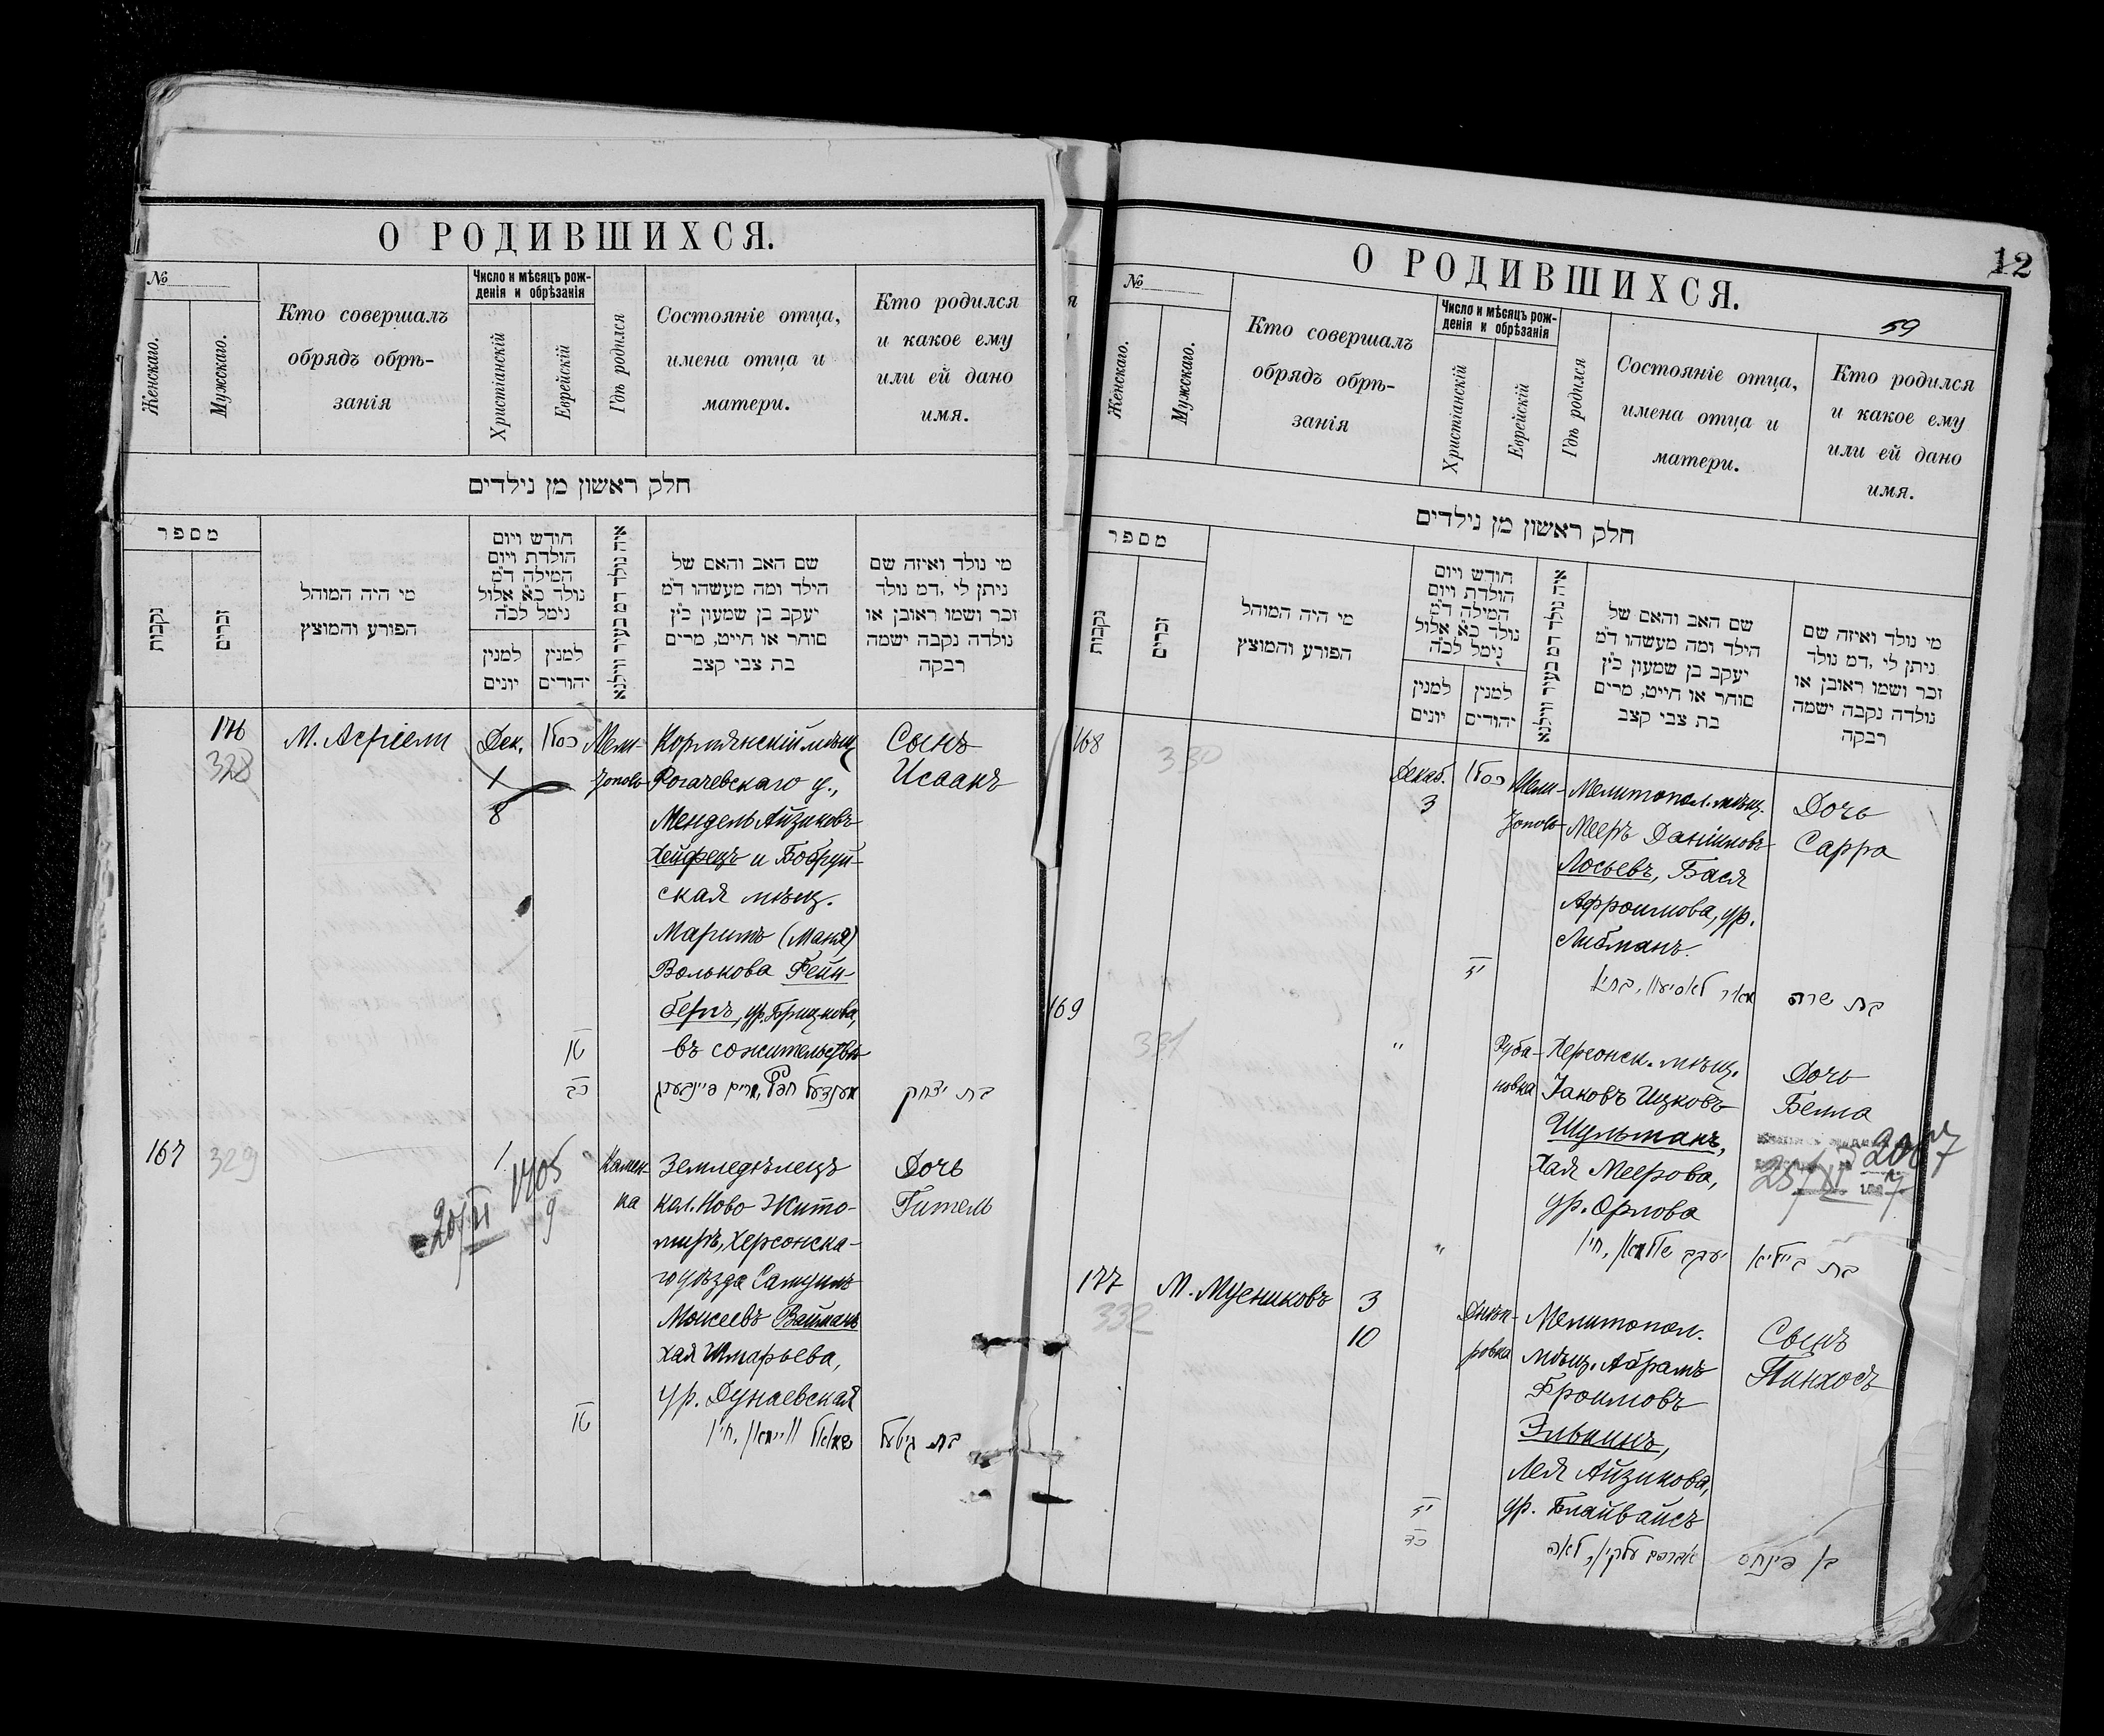 О РОДИВШИХСЯ.
№
Женскаго.
Мужскаго.
Кто совершалъ
обрядъ обрѣ-
занія
Число и мѣсяцъ рож-
денія и обрѣзанія
Христіанскій
Еврейскій
Гдѣ родился
Состояніе отца,
имена отца и
матери.
Кто родился
и какое ему
или ей дано
имя.
חלק ראשון מן נילדים
מספר
נקבות
זכרים
מי היה המוהל
הפורע והמוצץ
חודש ויום
הולדת ויום
המילה ד״מ
נולד כ״א אלול
נימל לכ״ה
למנין
יונים
למנין
יהודים
איה נולד דמ בעיר ווילנא
שם האב והאם של
הילד ומה מעשהו ד״מ
יעקב בן שמעון כ״ץ
סוחר או חייט, מרים
בת צבי קצב
מי נולד ואיזה שם
ניתן לי ,דמ נולד
זכר ושמו ראובן או
נולדה נקבה ישמה
רבקה
176
328
М. Асріели
Дек.
1
8
כסלו
Мели-
тополь
Кормянскій мѣщ.
Рогачевскаго у.,
Мендель Айзиковъ
Хейфецъ и Бобруй-
ская мѣщ.
Маримъ (Маня)
Волькова Фейн-
бергъ, ур. Брицкова,
въ сожительствѣ
Сынъ
Исаакъ
טו
כב
בת יצחק
167
329
1
Камен-
ка
Земледѣлецъ
кол. Ново Жито-
миръ, Херсонска-
го уѣзда Самуилъ
Моисеевъ Вайманъ
Хая Шмарьева,
ур. Дунаевская
Дочь
Гитель
טו
שמואל וויימאן, חי׳
בת גיטעל
О РОДИВШИХСЯ.
12
59
№
Женскаго.
Мужскаго.
Кто совершалъ
обрядъ обрѣ-
занія
Число и мѣсяцъ рож-
денія и обрѣзанія
Христіанскій
Еврейскій
Гдѣ родился
Состояніе отца,
имена отца и
матери.
Кто родился
и какое ему
или ей дано
имя.
חלק ראשון מן נילדים
מספר
נקבות
זכרים
מי היה המוהל
הפורע והמוצץ
חודש ויום
הולדת ויום
המילה ד״מ
נולד כ״א אלול
נימל לכ״ה
למנין
יונים
למנין
יהודים
איה נולד דמ בעיר ווילנא
שם האב והאם של
הילד ומה מעשהו ד״מ
יעקב בן שמעון כ״ץ
סוחר או חייט, מרים
בת צבי קצב
מי נולד ואיזה שם
ניתן לי ,דמ נולד
זכר ושמו ראובן או
נולדה נקבה ישמה
רבקה
168
330
Декаб.
3
כסלו
Мели-
тополь
Мелитопол. мѣщ.
Мееръ Даниловъ
Лосьевъ, Бася
Афроимова, ур.
Либманъ.
Дочь
Сарра
יז
בת שרה
169
331
"
Руба-
новка
Херсонск. мѣщ.
Іаковъ Ицковъ
Шульманъ,
Хая Меерова,
ур. Орлова
Дочь
Бейла
"
יעקב שולמאן, חי׳
בת ביילא
177
332
М. Мусниковъ
3
10
Днѣп-
ровка
Мелитопол.
мѣщ. Абрамъ
Фроимовъ
Элькинъ,
Лея Айзикова,
ур. Блайвайсъ
Сынъ
Пинхосъ
יז
כד
אברהם עלקין, לאה
בן פינחס